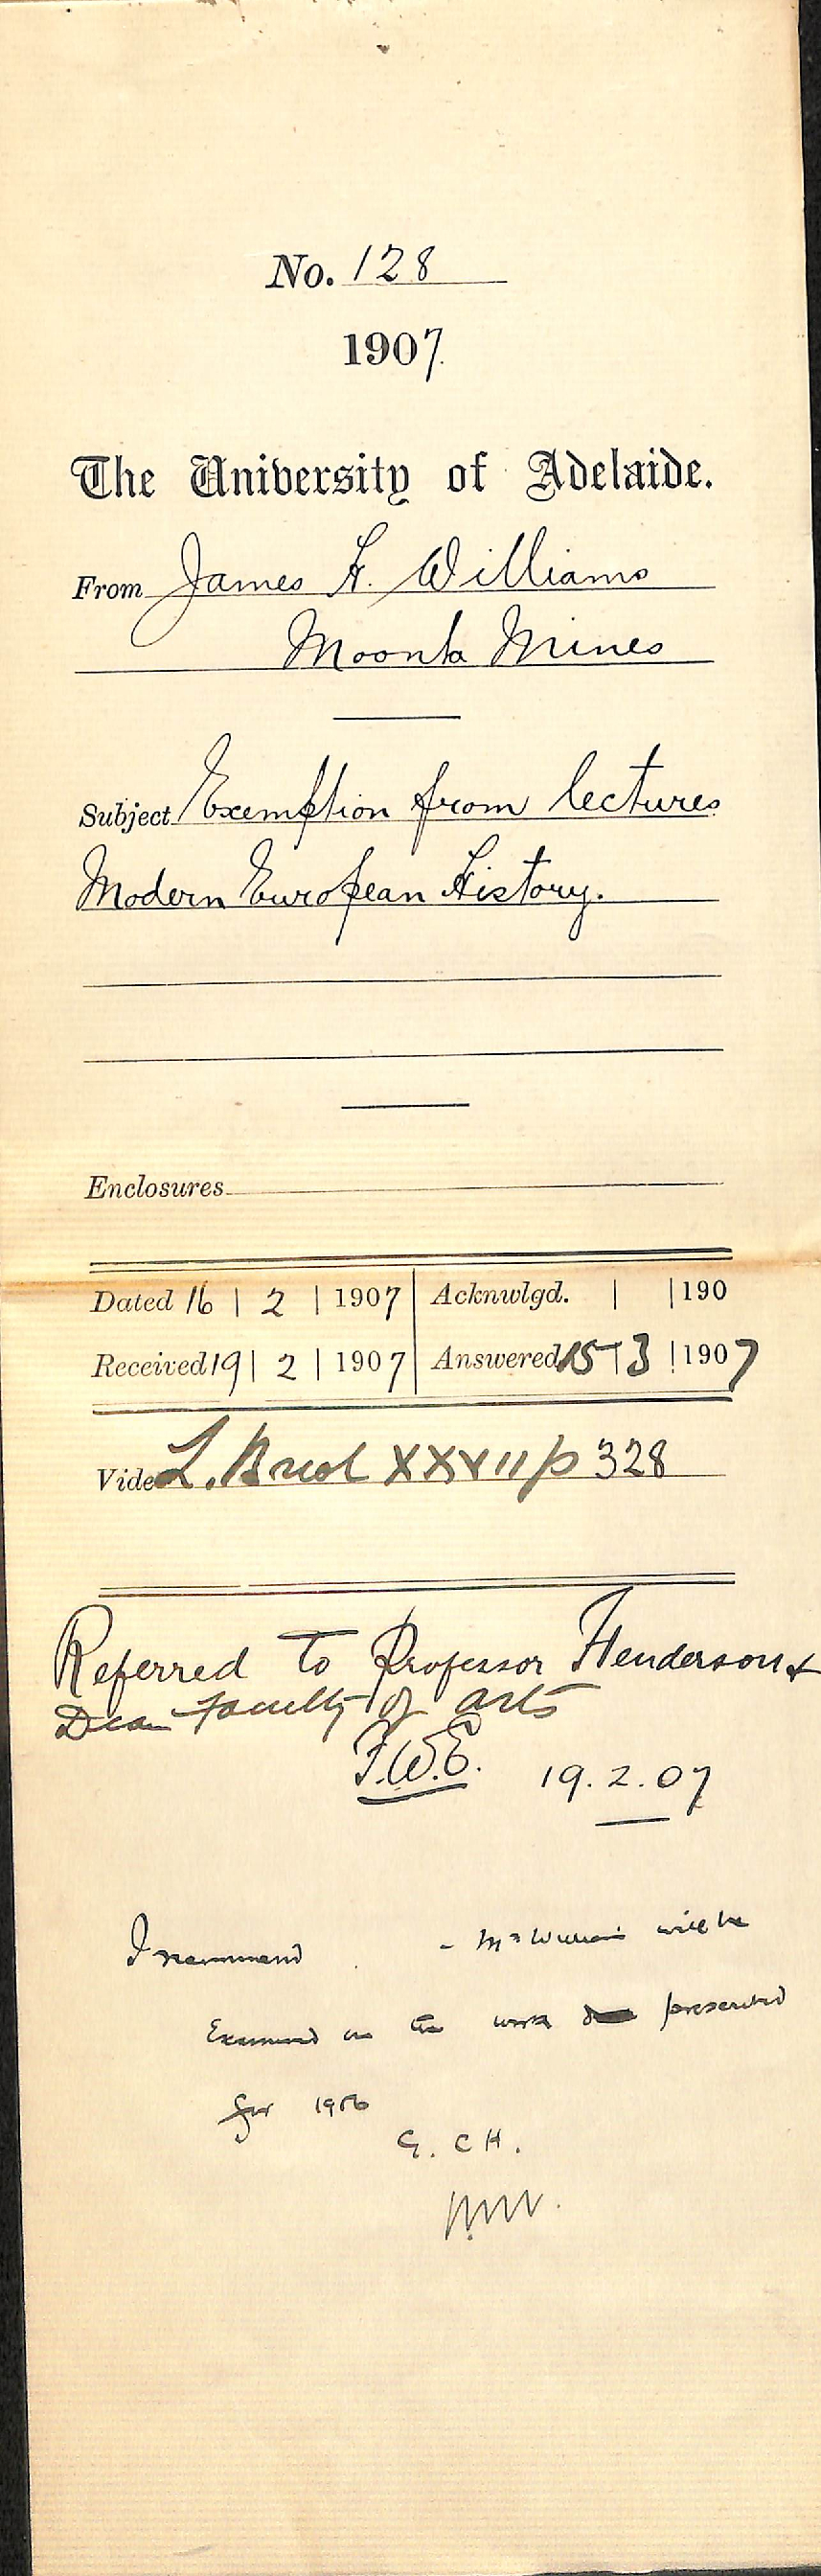 No. 128
1907.
The University of Adelaide.
From James H. Williams
Moonta Mines
Subject Exemption from lectures
Modern European History.
Enclosures
Dated 16 | 2 | 1907 Acknwlgd. | | 190
Received 19 | 2 | 1907 Answered 15 | 3 | 1907
Vide L. Book XXVII p 328
Referred to Professor Henderson &
Dean Faculty of Arts
F.W.E. 19.2.07
I recommend - Mr Williams will be
Examined in the work presented
for 1906
G. C H.